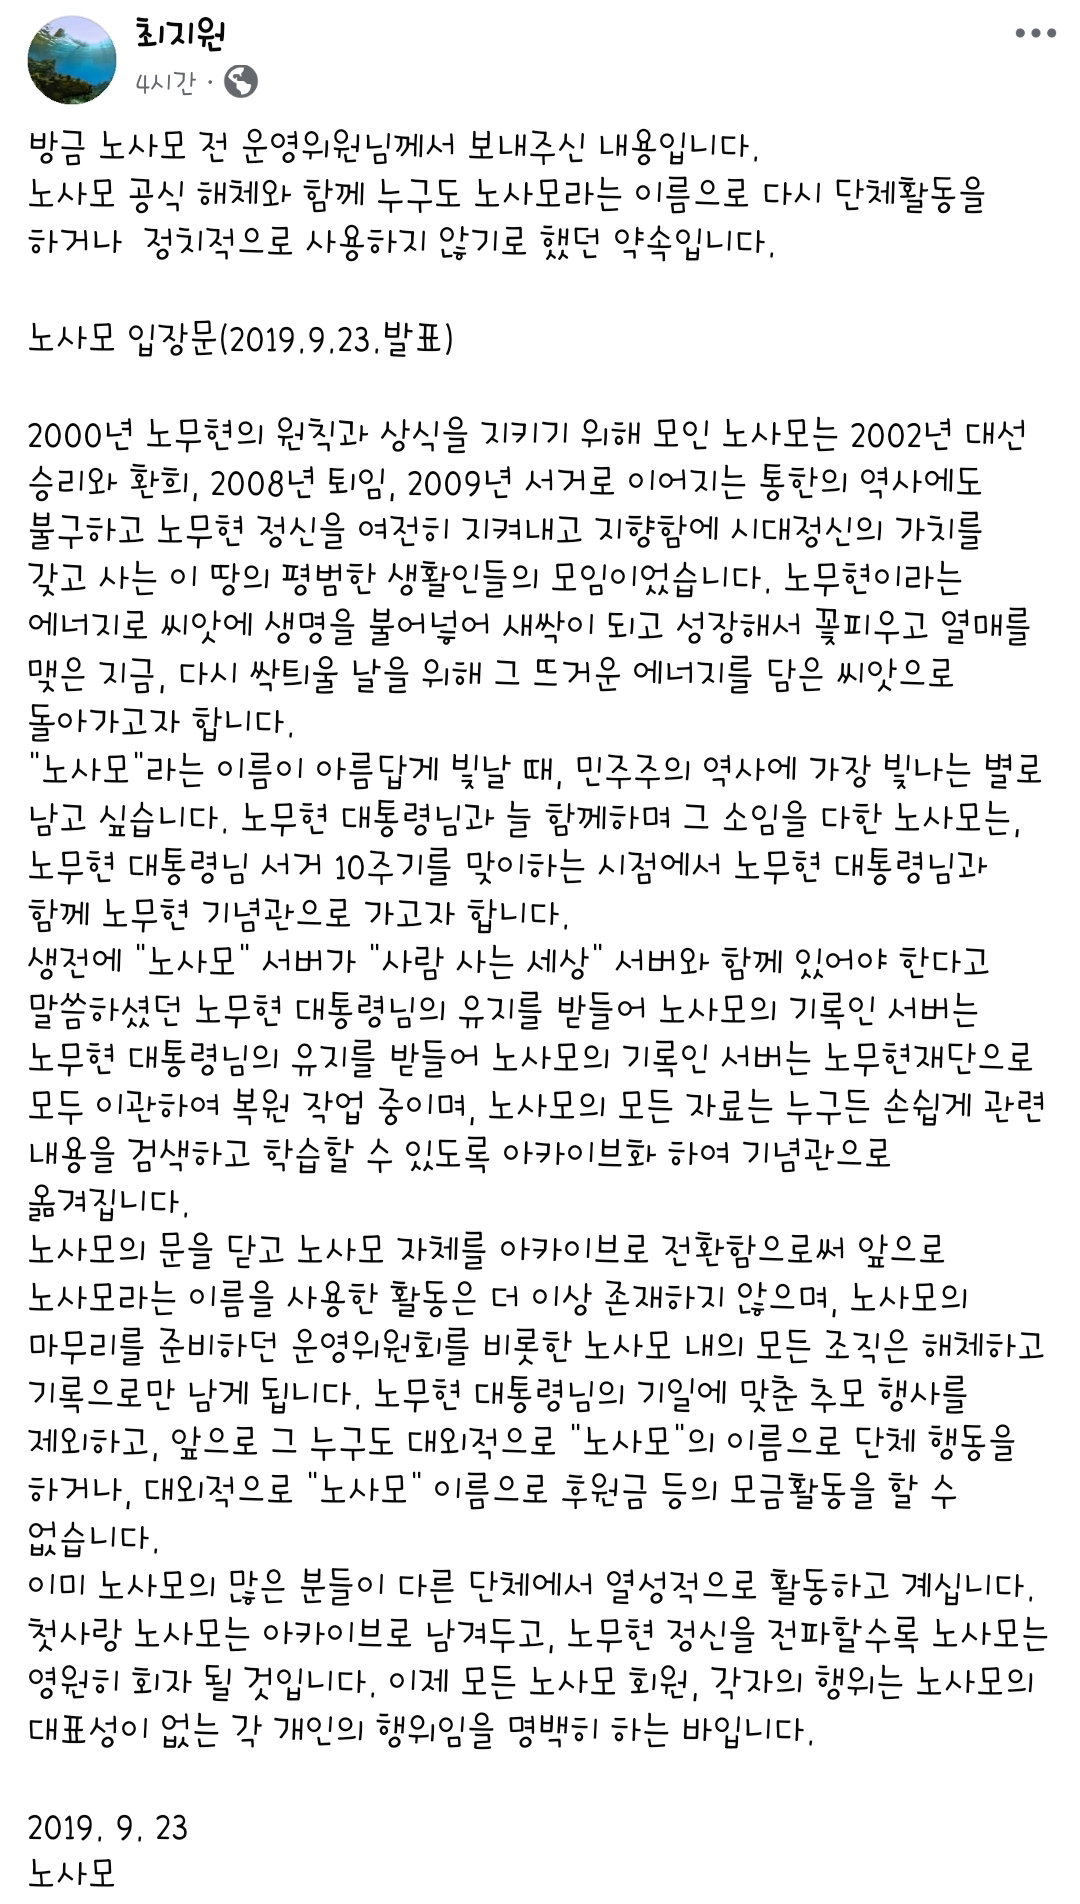 최지원
4시간 ·
방금 노사모 전 운영위원님께서 보내주신 내용입니다.
노사모 공식 해체와 함께 누구도 노사모라는 이름으로 다시 단체활동을
하거나  정치적으로 사용하지 않기로 했던 약속입니다.
노사모 입장문(2019.9.23.발표)
2000년 노무현의 원칙과 상식을 지키기 위해 모인 노사모는 2002년 대선
승리와 환희, 2008년 퇴임, 2009년 서거로 이어지는 통한의 역사에도
불구하고 노무현 정신을 여전히 지켜내고 지향함에 시대정신의 가치를
갖고 사는 이 땅의 평범한 생활인들의 모임이었습니다. 노무현이라는
에너지로 씨앗에 생명을 불어넣어 새싹이 되고 성장해서 꽃피우고 열매를
맺은 지금, 다시 싹틔울 날을 위해 그 뜨거운 에너지를 담은 씨앗으로
돌아가고자 합니다.
"노사모"라는 이름이 아름답게 빛날 때, 민주주의 역사에 가장 빛나는 별로
남고 싶습니다. 노무현 대통령님과 늘 함께하며 그 소임을 다한 노사모는,
노무현 대통령님 서거 10주기를 맞이하는 시점에서 노무현 대통령님과
함께 노무현 기념관으로 가고자 합니다.
생전에 "노사모" 서버가 "사람 사는 세상" 서버와 함께 있어야 한다고
말씀하셨던 노무현 대통령님의 유지를 받들어 노사모의 기록인 서버는
노무현 대통령님의 유지를 받들어 노사모의 기록인 서버는 노무현재단으로
모두 이관하여 복원 작업 중이며, 노사모의 모든 자료는 누구든 손쉽게 관련
내용을 검색하고 학습할 수 있도록 아카이브화 하여 기념관으로
옮겨집니다.
노사모의 문을 닫고 노사모 자체를 아카이브로 전환함으로써 앞으로
노사모라는 이름을 사용한 활동은 더 이상 존재하지 않으며, 노사모의
마무리를 준비하던 운영위원회를 비롯한 노사모 내의 모든 조직은 해체하고
기록으로만 남게 됩니다. 노무현 대통령님의 기일에 맞춘 추모 행사를
제외하고, 앞으로 그 누구도 대외적으로 "노사모"의 이름으로 단체 행동을
하거나, 대외적으로 "노사모" 이름으로 후원금 등의 모금활동을 할 수
없습니다.
이미 노사모의 많은 분들이 다른 단체에서 열성적으로 활동하고 계십니다.
첫사랑 노사모는 아카이브로 남겨두고, 노무현 정신을 전파할수록 노사모는
영원히 회자 될 것입니다. 이제 모든 노사모 회원, 각자의 행위는 노사모의
대표성이 없는 각 개인의 행위임을 명백히 하는 바입니다.
2019. 9. 23
노사모